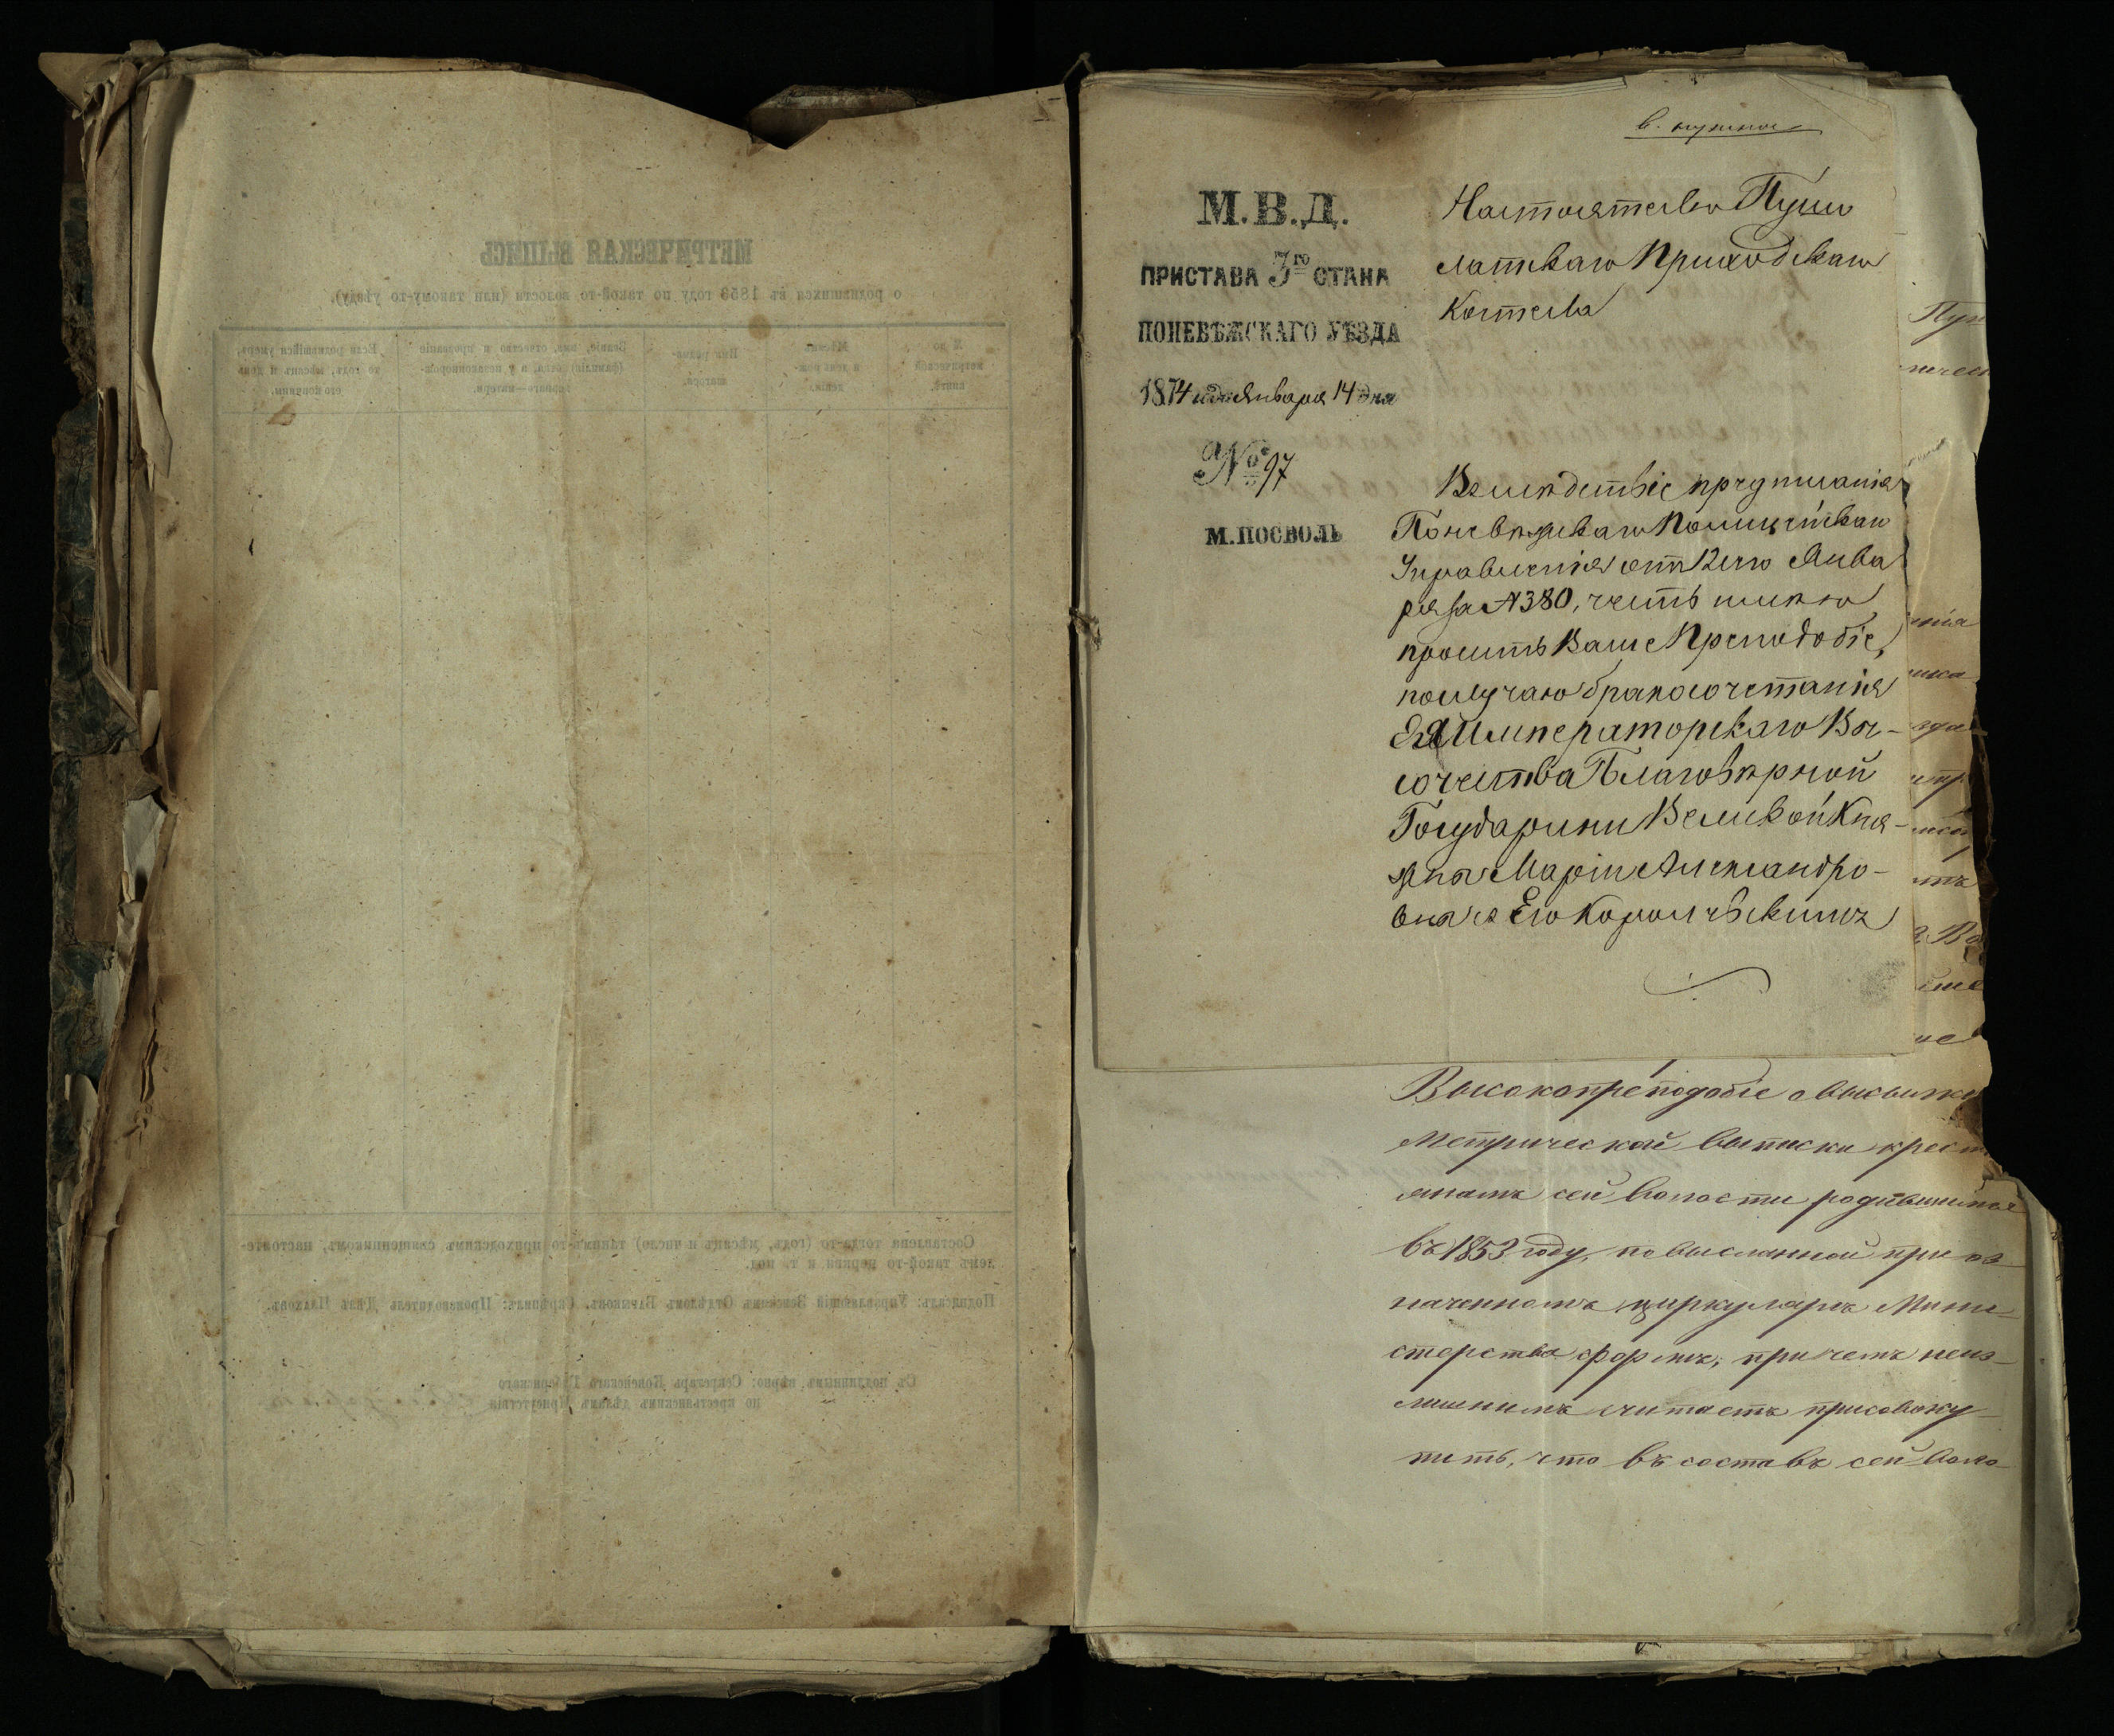 МЕТРИЧЕСКАЯ ВЫПИСЬ
о родившихся въ 1853 году по такой-то волости (или такому-то уѣзду).
№ по метрической книгѣ.
Мѣсяцъ и день рожденія.
Имя родившагося.
Званіе, имя, отчество и прозваніе (фамилія) отца, а у незаконнорожденнаго—матери.
Если родившійся умеръ, то годъ, мѣсяцъ и день его кончины.
Составлена тогда-то (годъ, мѣсяцъ и число) такимъ-то приходскимъ священникомъ, настояте-
лемъ такой-то церкви и т. под.
Подписалъ: Управляющій Земскимъ Отдѣломъ Скрѣпилъ: Производитель Дѣлъ
Съ подлиннымъ вѣрно: Секретарь Ковенскаго Губернскаго
по крестьянскимъ дѣламъ Присутствія
М.В.Д.
ПРИСТАВА 3го СТАНА
ПОНЕВѢЖСКАГО УѢЗДА
1874 года Января 14 дня
№ 97
М. ПОСВОЛЬ
Настоятелю Пуш
латскаго Приходскаго
Костела
Вслѣдствіе предписанія
Поневѣжскаго Полицейскаго
Управленія отъ 12го Янва
ря за № 380, честь имѣю
просить Ваше Преподобіе,
по случаю бракосочетанія
Ея Императорскаго Вы-
сочества Благовѣрной
Государыни Великой Кня-
жны Маріи Александро-
вны съ Его Королевскимъ
Высокопреподобіе о высылкѣ
Метрической выписки крест
янамъ сей волости родившимся
въ 1853 году, по высланной при оз
наченномъ циркулярѣ Мини-
стерства формѣ, причемъ неиз-
лишнимъ считаетъ присовоку-
пить, что въ составъ сей воло-